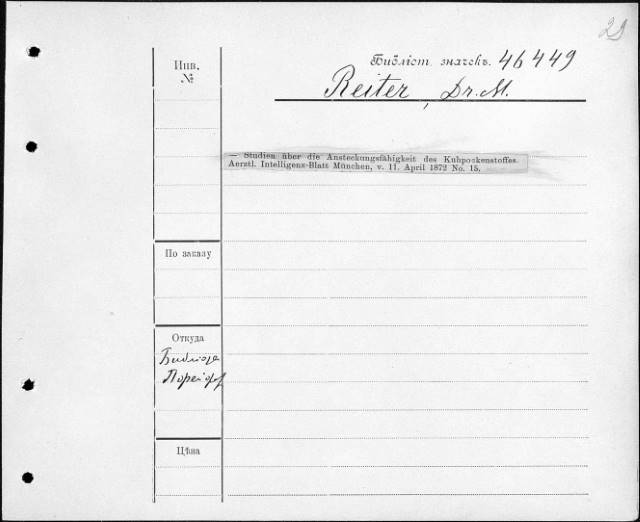 29
Инв.
№
Библіот. значекъ. 46449
Reiter, Dr. M.
— Studien über die Ansteckungsfähigkeit des Kuhpockenstoffes.
Aerztl. Intelligenz-Blatt München, v. 11. April 1872 No. 15.
По заказу
Откуда
Цѣна